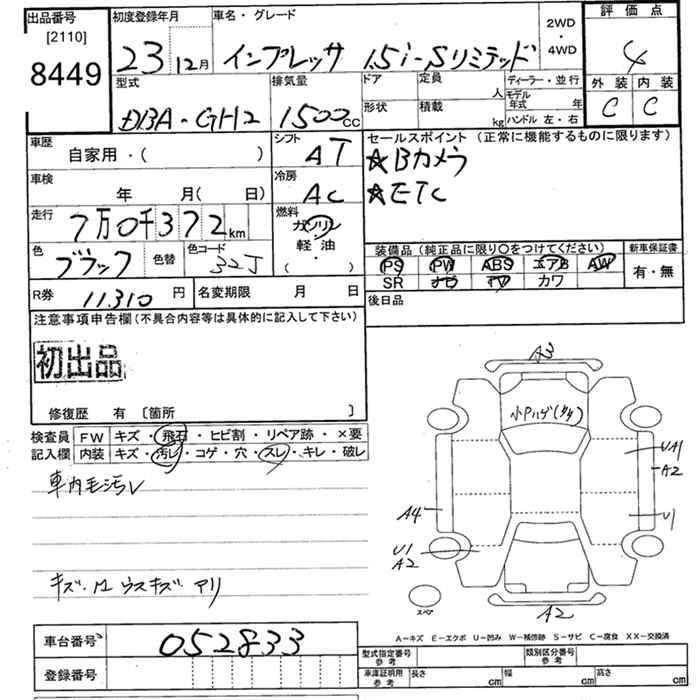 出品番号
[2110]
8449
初度登録年月
23 12月
車名・グレード
インプレッサ 1.5i-Sリミテッド
2WD
・
4WD
評価点
4
型式
DBA-GH2
排気量
1500cc
ドア
定員
人
ディーラー・並行
形状
積載
kg
モデル年式 年
ハンドル 左・右
外装
内装
C
C
車歴
自家用・( )
シフト
AT
セールスポイント (正常に機能するものに限ります)
☆Bカメラ
☆ETC
車検
年 月( 日)
冷房
AC
走行
7万0千372km
燃料
ガソリン
軽油
( ・ )
色
ブラック
色替
色コード
32J
装備品(純正品に限り○をつけてください)
新車保証書
PS PW ABS エアB AW
有・無
SR ナビ TV カワ
R券
11,310円
名変期限 月 日
後日品
注意事項申告欄(不具合内容等は具体的に記入して下さい)
初出品
修復歴 有 〔箇所 〕
検査員
記入欄
FW キズ・飛石・ヒビ割・リペア跡・×要
内装 キズ・汚レ・コゲ・穴・スレ・キレ・破レ
車内毛汚レ
キズ・凹 ウスキズ アリ
A3
小Pハゲ(タタ)
UA1
A2
A4
U1
U1
A2
スペア
A2
A-キズ E-エクボ U-凹み W-補修跡 S-サビ C-腐食 XX-交換済
車台番号
052833
登録番号
型式指定番号
参考
類別区分番号
参考
車庫証明用
参考
長さ cm
幅 cm
高さ cm